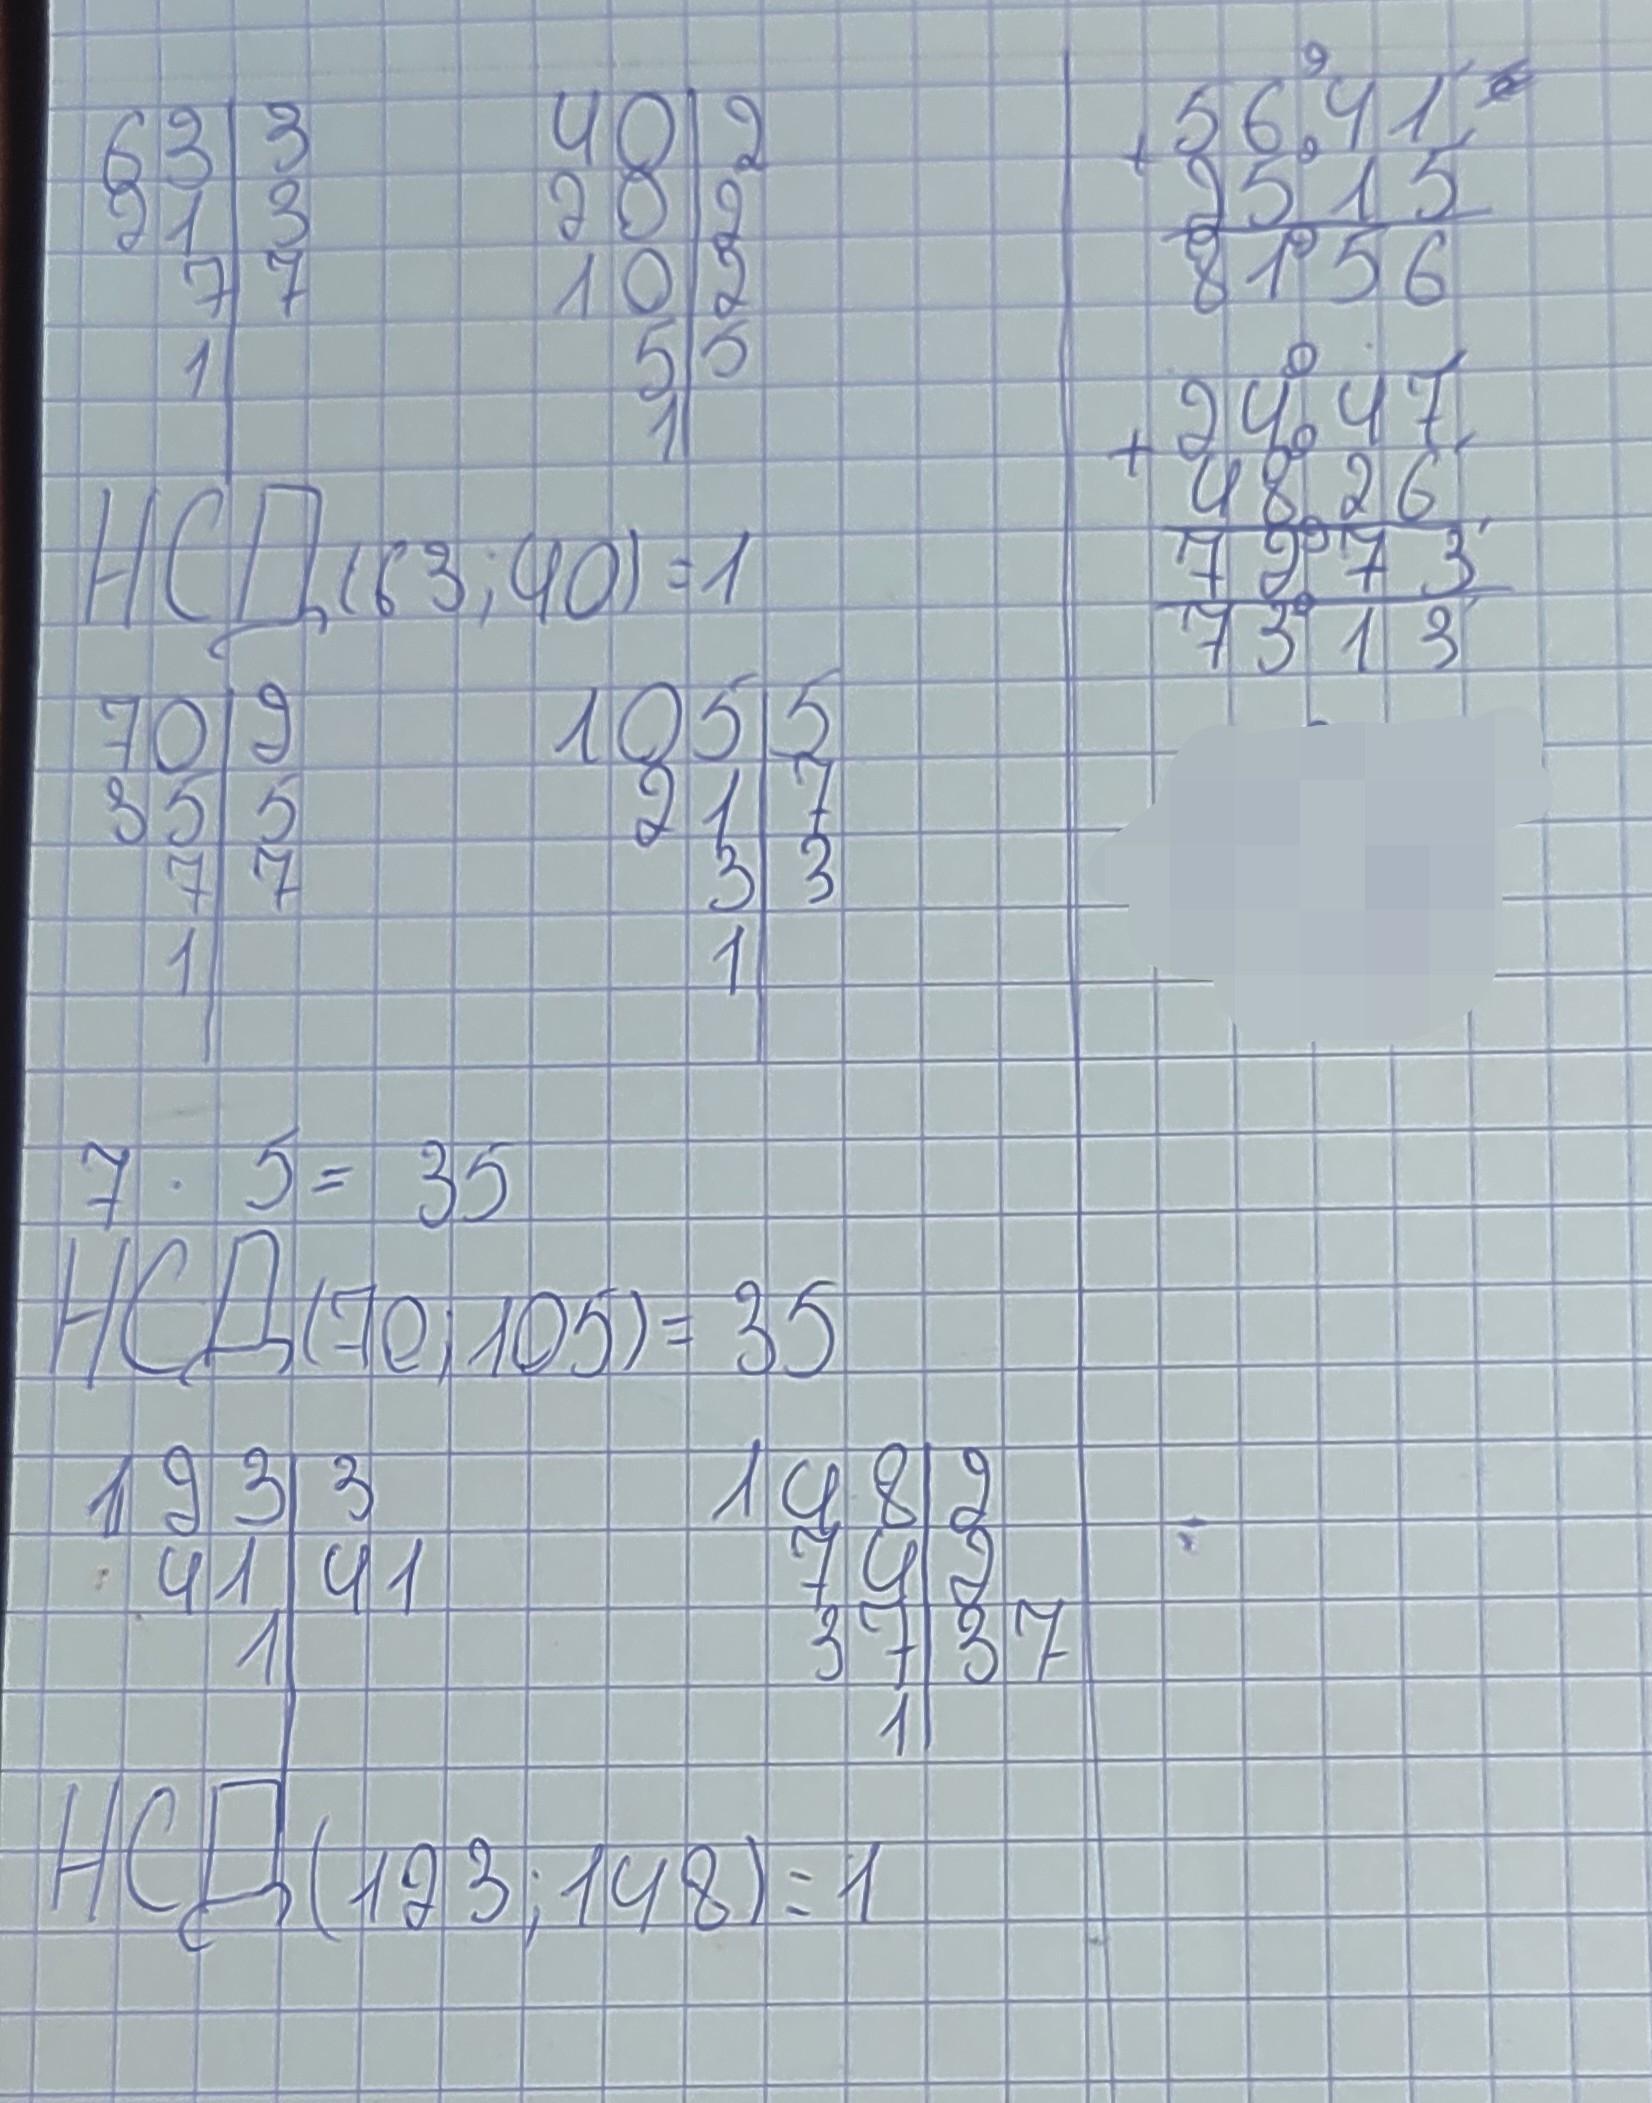 63|3
21|3
7|7
1
40|2
20|2
10|2
5|5
1
НСД(63;40)=1
70|2
35|5
7|7
1
105|5
21|7
3|3
1
7 · 5 = 35
НСД(70;105)=35
123|3
41|41
1
148|2
74|2
37|37
1
НСД(123;148)=1
56°41'
+
25°15
81°56
24°47'
+
48°26'
72°73'
73°13'